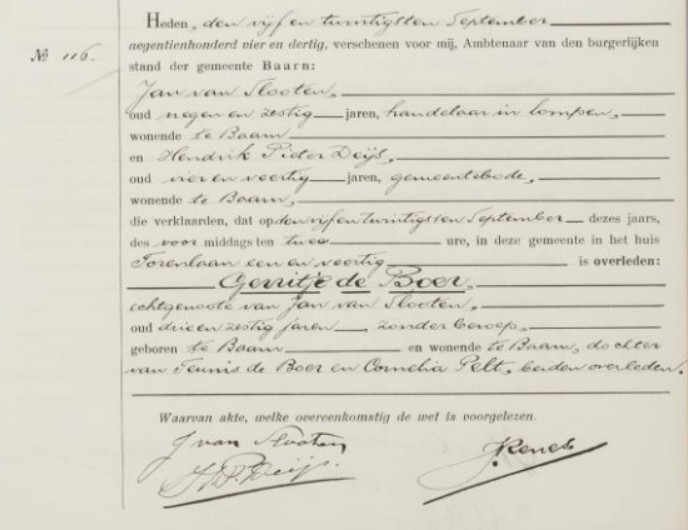 Heden, den vijf en twintigsten September
negentienhonderd vier en dertig, verschenen voor mij, Ambtenaar van den burgerlijken
No 116.
stand der gemeente Baarn:
Jan van Slooten,
oud negen en zestig jaren, handelaar in lompen,
wonende te Baarn
en Hendrik Pieter Deijs,
oud vier en veertig jaren, gemeentebode,
wonende te Baarn,
die verklaarden, dat op den vijf en twintigsten September dezes jaars,
des voor middags ten twee ure, in deze gemeente in het huis
Torenlaan een en veertig is overleden:
Gerritje de Boer,
echtgenoote van Jan van Slooten,
oud drie en zestig jaren, zonder beroep,
geboren te Baarn en wonende te Baarn, dochter
van Teunis de Boer en Cornelia Pelt, beiden overleden.
Waarvan akte, welke overeenkomstig de wet is voorgelezen.
J van Slooten
H.P. Deijs.
J. Renes